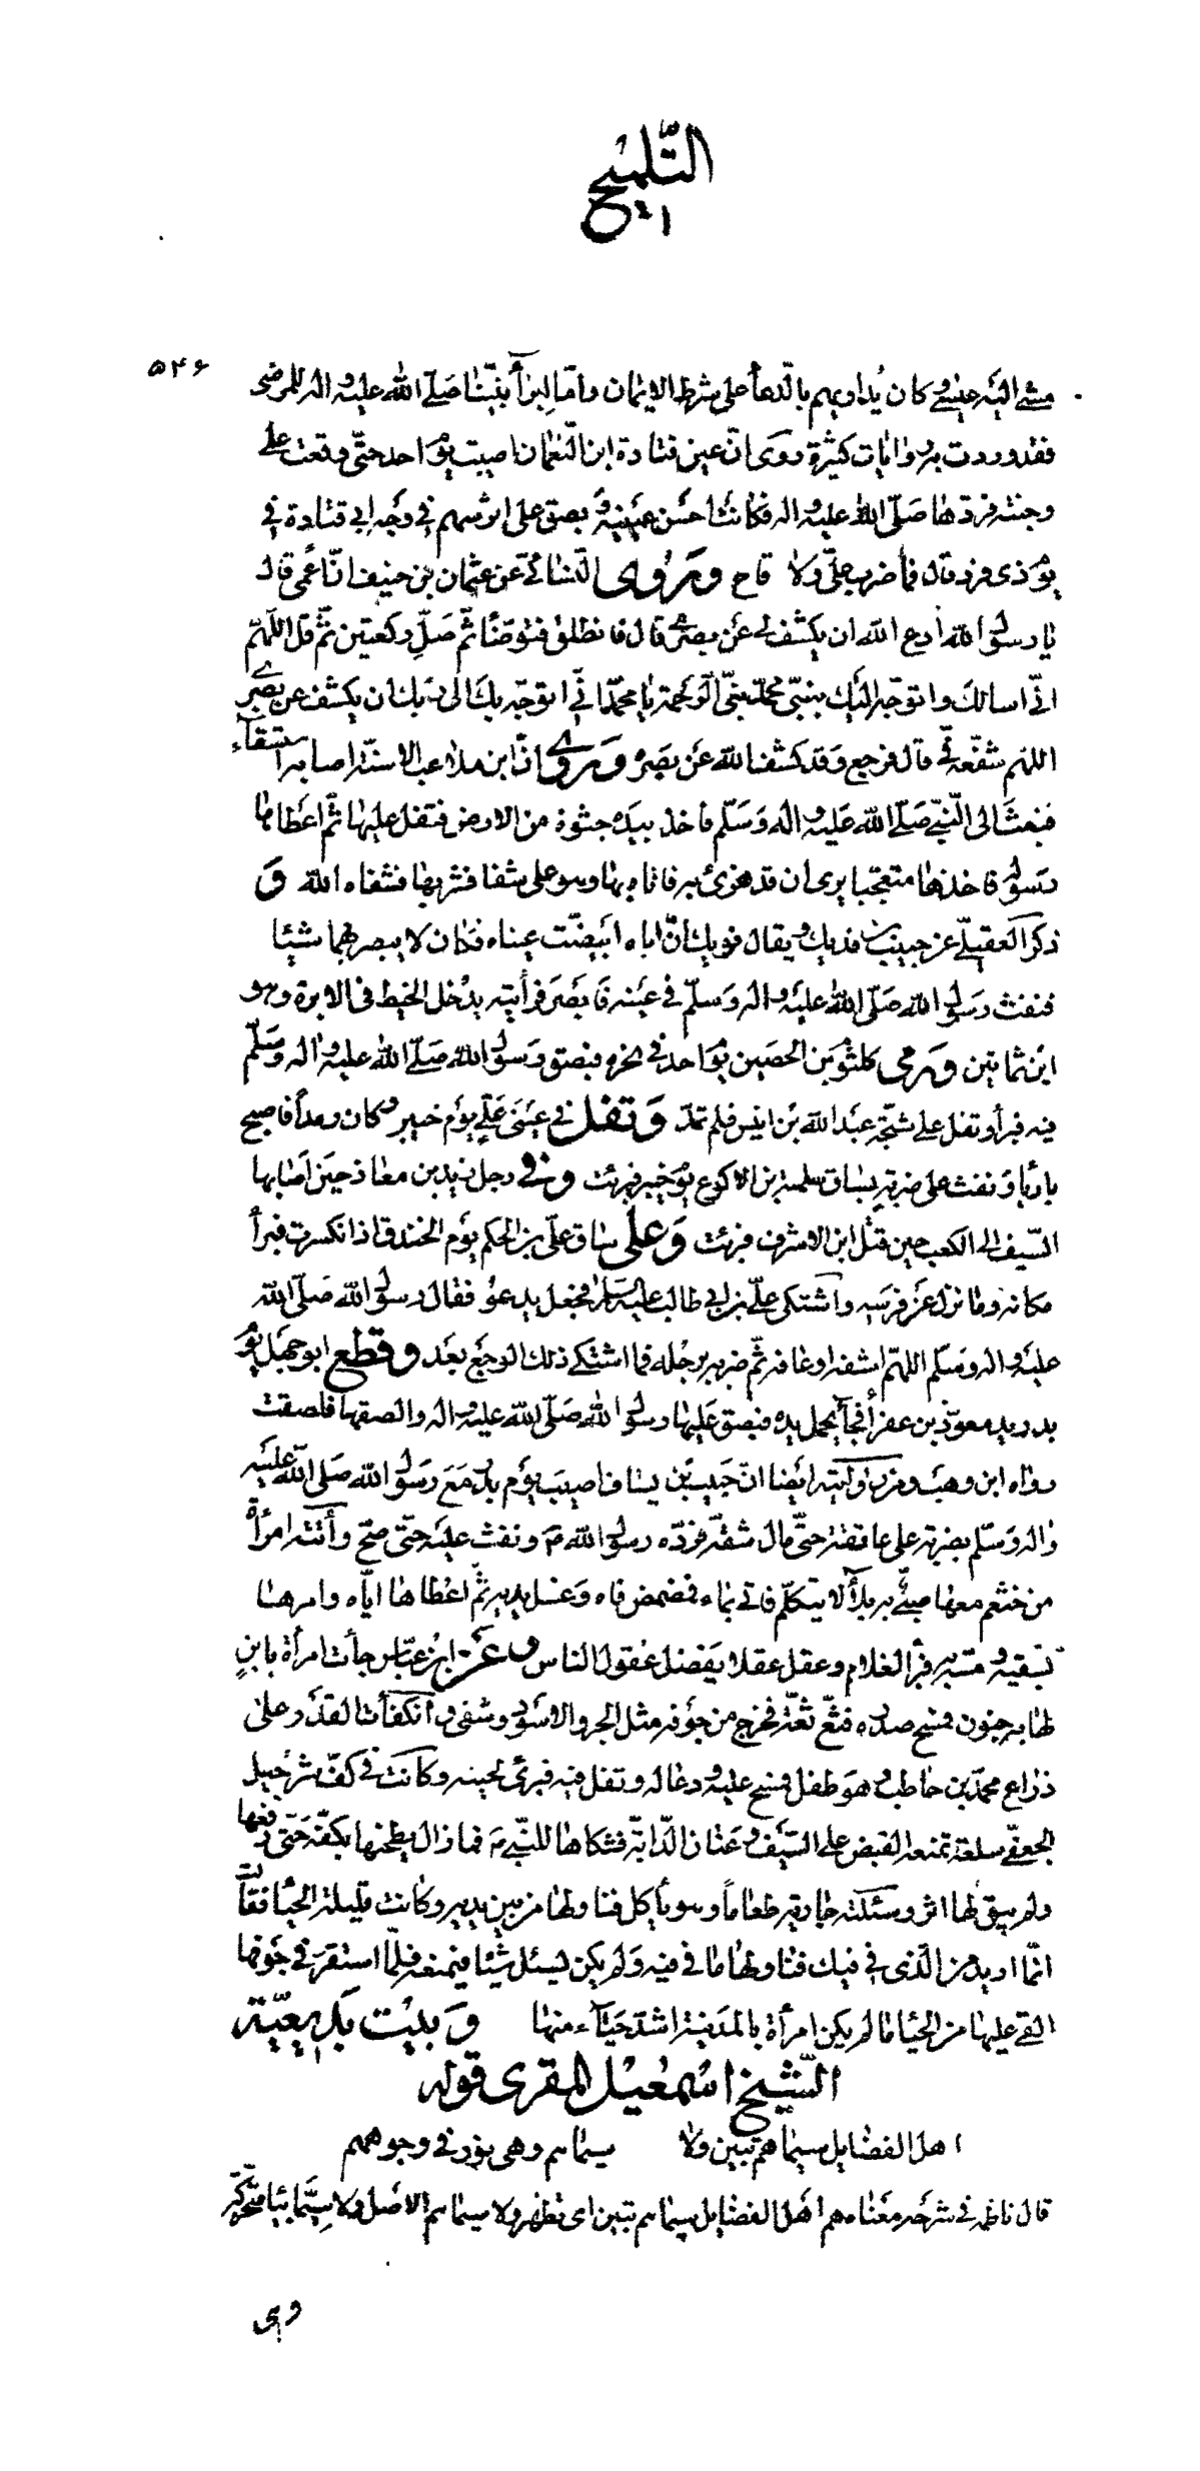 التّلميح
٥٤٦
مشى اليه عيسى و كان يُداويهم بالدّعأ على شرط الايمان وامّا ابرأ نبيّنا صَلّى اللّٰه عليه واله للمرضى
فقد وردت به روايات كثيرة روى انّ عين قتادة ابن النّعمان اصيبت يوم احد حتّى وقعت على
وجنته فردّها صَلّى اللّٰه عليه واله فكانت احسَن عينيه و بصق على اثر سهم في وَجه ابي قتادة في
يوم ذي قرد قال فما ضرب علىّ ولا قاح وَروى النّسائي عن عثمان بن حنيف انّ اعمى قال
يا رسول اللّٰه ادع اللّٰه ان يكشف لي عَن بصرى قال فانطلق فتوضّأ ثمّ صَلّ ركعتين ثمّ قل اللّهمّ
انّي اسالك واتوجّه اليك بنبيّي محمّد نبيّ الرّحمة يا محمّد انّي اتوجّه بك الى ربّك ان يكشف عن بصرى
اللهم شفّعه فيّ قال فرجع وَقد كشف اللّٰه عَن بصَره وَروى انّ ابن ملاعب الاسنّة اصابه استسقاء
فبعث الى النّبيّ صَلّى اللّٰه عَليه واله وَسَلّم فاخذ بيده جثوة من الارض فتفل عليها ثمّ اعطاها
رسوله فاخذها متعجّبا يرى ان قد هزئ به فاتاه بها وهو على شفا فشربها فشفاه اللّٰه وَ
ذكر العقيلي عن حبيب بن فديك ويقال فويك انّ اباه ابيضّت عيناه فكان لا يبصر بهما شيئا
فنفث رسَول اللّٰه صَلّى اللّٰه عليه واله وسلّم في عَينه فابصَر فرأيته يدُخل الخيط في الابرة وهو
ابن ثمانين وَرمى كلثوم بن الحصَين يوم احد في نحره فبصق رسَول اللّٰه صَلّى اللّٰه عليه واله وسَلّم
فيه فبرأ و تفل على شجّة عبد اللّٰه بن انيس فلم تمدّ وَتفل في عيني علي يوم خيبر و كان رمدا فاصبح
بارئا وَنفث على ضربة بساق سلمة بن الاكوع يوم خيبر فبرئت وَ في رجل زيد بن معاذ حين اصابها
السّيف الى الكعب حين قتل ابن الاشرف فبرئت وَ على ساق علىّ بن الحكم يوم الخندق اذ انكسرت فبرأ
مكانه وما نزل عن فرسه واشتكى علىّ بن ابي طالب عليه السّلام فجعل يدعو فقال رسول اللّٰه صَلّى اللّٰه
عليه واله وسلم اللهمّ اشفه او عافه ثمّ ضربه برجله فما اشتكى ذلك الوجع بعد وقطع ابو جهل يوم
بدر يد معوّذ بن عفرأ فجأ يحمل يده فبصق عليها رسول اللّٰه صَلّى اللّٰه عليه واله والصقها فلصقت
رواه ابن وهب و من روايته ايضا انّ حبيب بن يساف اصيب يوم بدر مَع رسَول اللّٰه صَلى اللّٰه عليه
واله وسَلّم بضربة على عاتقه حتّى مال شقّه فردّه رسول اللّٰه ص ونفث عليه حتّى صحّ وأتته امرأة
من خثعم معها صبيّ به بلأ لا يتكلّم فاتى بماء فمضمض فاه وغسل يديه ثمّ اعطاها ايّاه وامرها
بسقيه و مسّه به فبرأ الغلام وعقل عقلا يفضل عقول الناس وَعَن ابن عبّاس جأت امرأة بابنٍ
لها به جنون فمسح صدره فثعّ ثعّة فخرج من جوفه مثل الجرو الاسَود وشفى و انكفأت القدر على
ذراع محمّد بن حاطب و هو طفل فمسح عليه و دعا له وتفل فيه فبرئ لحينه وكانت في كفّ شرحبيل
الجعفي سلعة تمنعه القبض على السّيف و عنان الدّابّة فشكاها للنّبي ص فما زال يطحنها بكفّه حتّى رفعها
ولم يبق لها اثر وسئلته جارية طعاماً وهو يأكل فناولها من بين يديه وكانت قليلة الحيأ فقالت
انّما اريد من الّذي في فيك فناولها ما في فيه وَلم يكن يسئل شيئا فيمنعه فلمّا استقرّ في جوفها
القى عليها من الحيأ ما لم يكن امرأة بالمدينة اشدّ حيَاء منها وَبيت بديعيّة
الشّيخ اسمعيل المقرى قوله
اهل الفضايل سيماهم تبين ولا سيماهم وهي نور في وجوههم
قال ناظمه في شرحه معناه هم اهل الفضايل سيماهم تبين اى تظهر ولا سيماهم الاصل ولا سيّما بيا متحرّكة
وهي